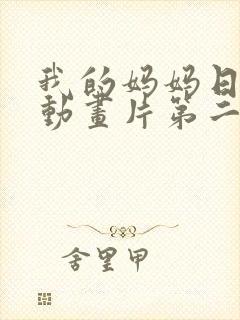 我的妈妈日
動畫片第二
舍里甲